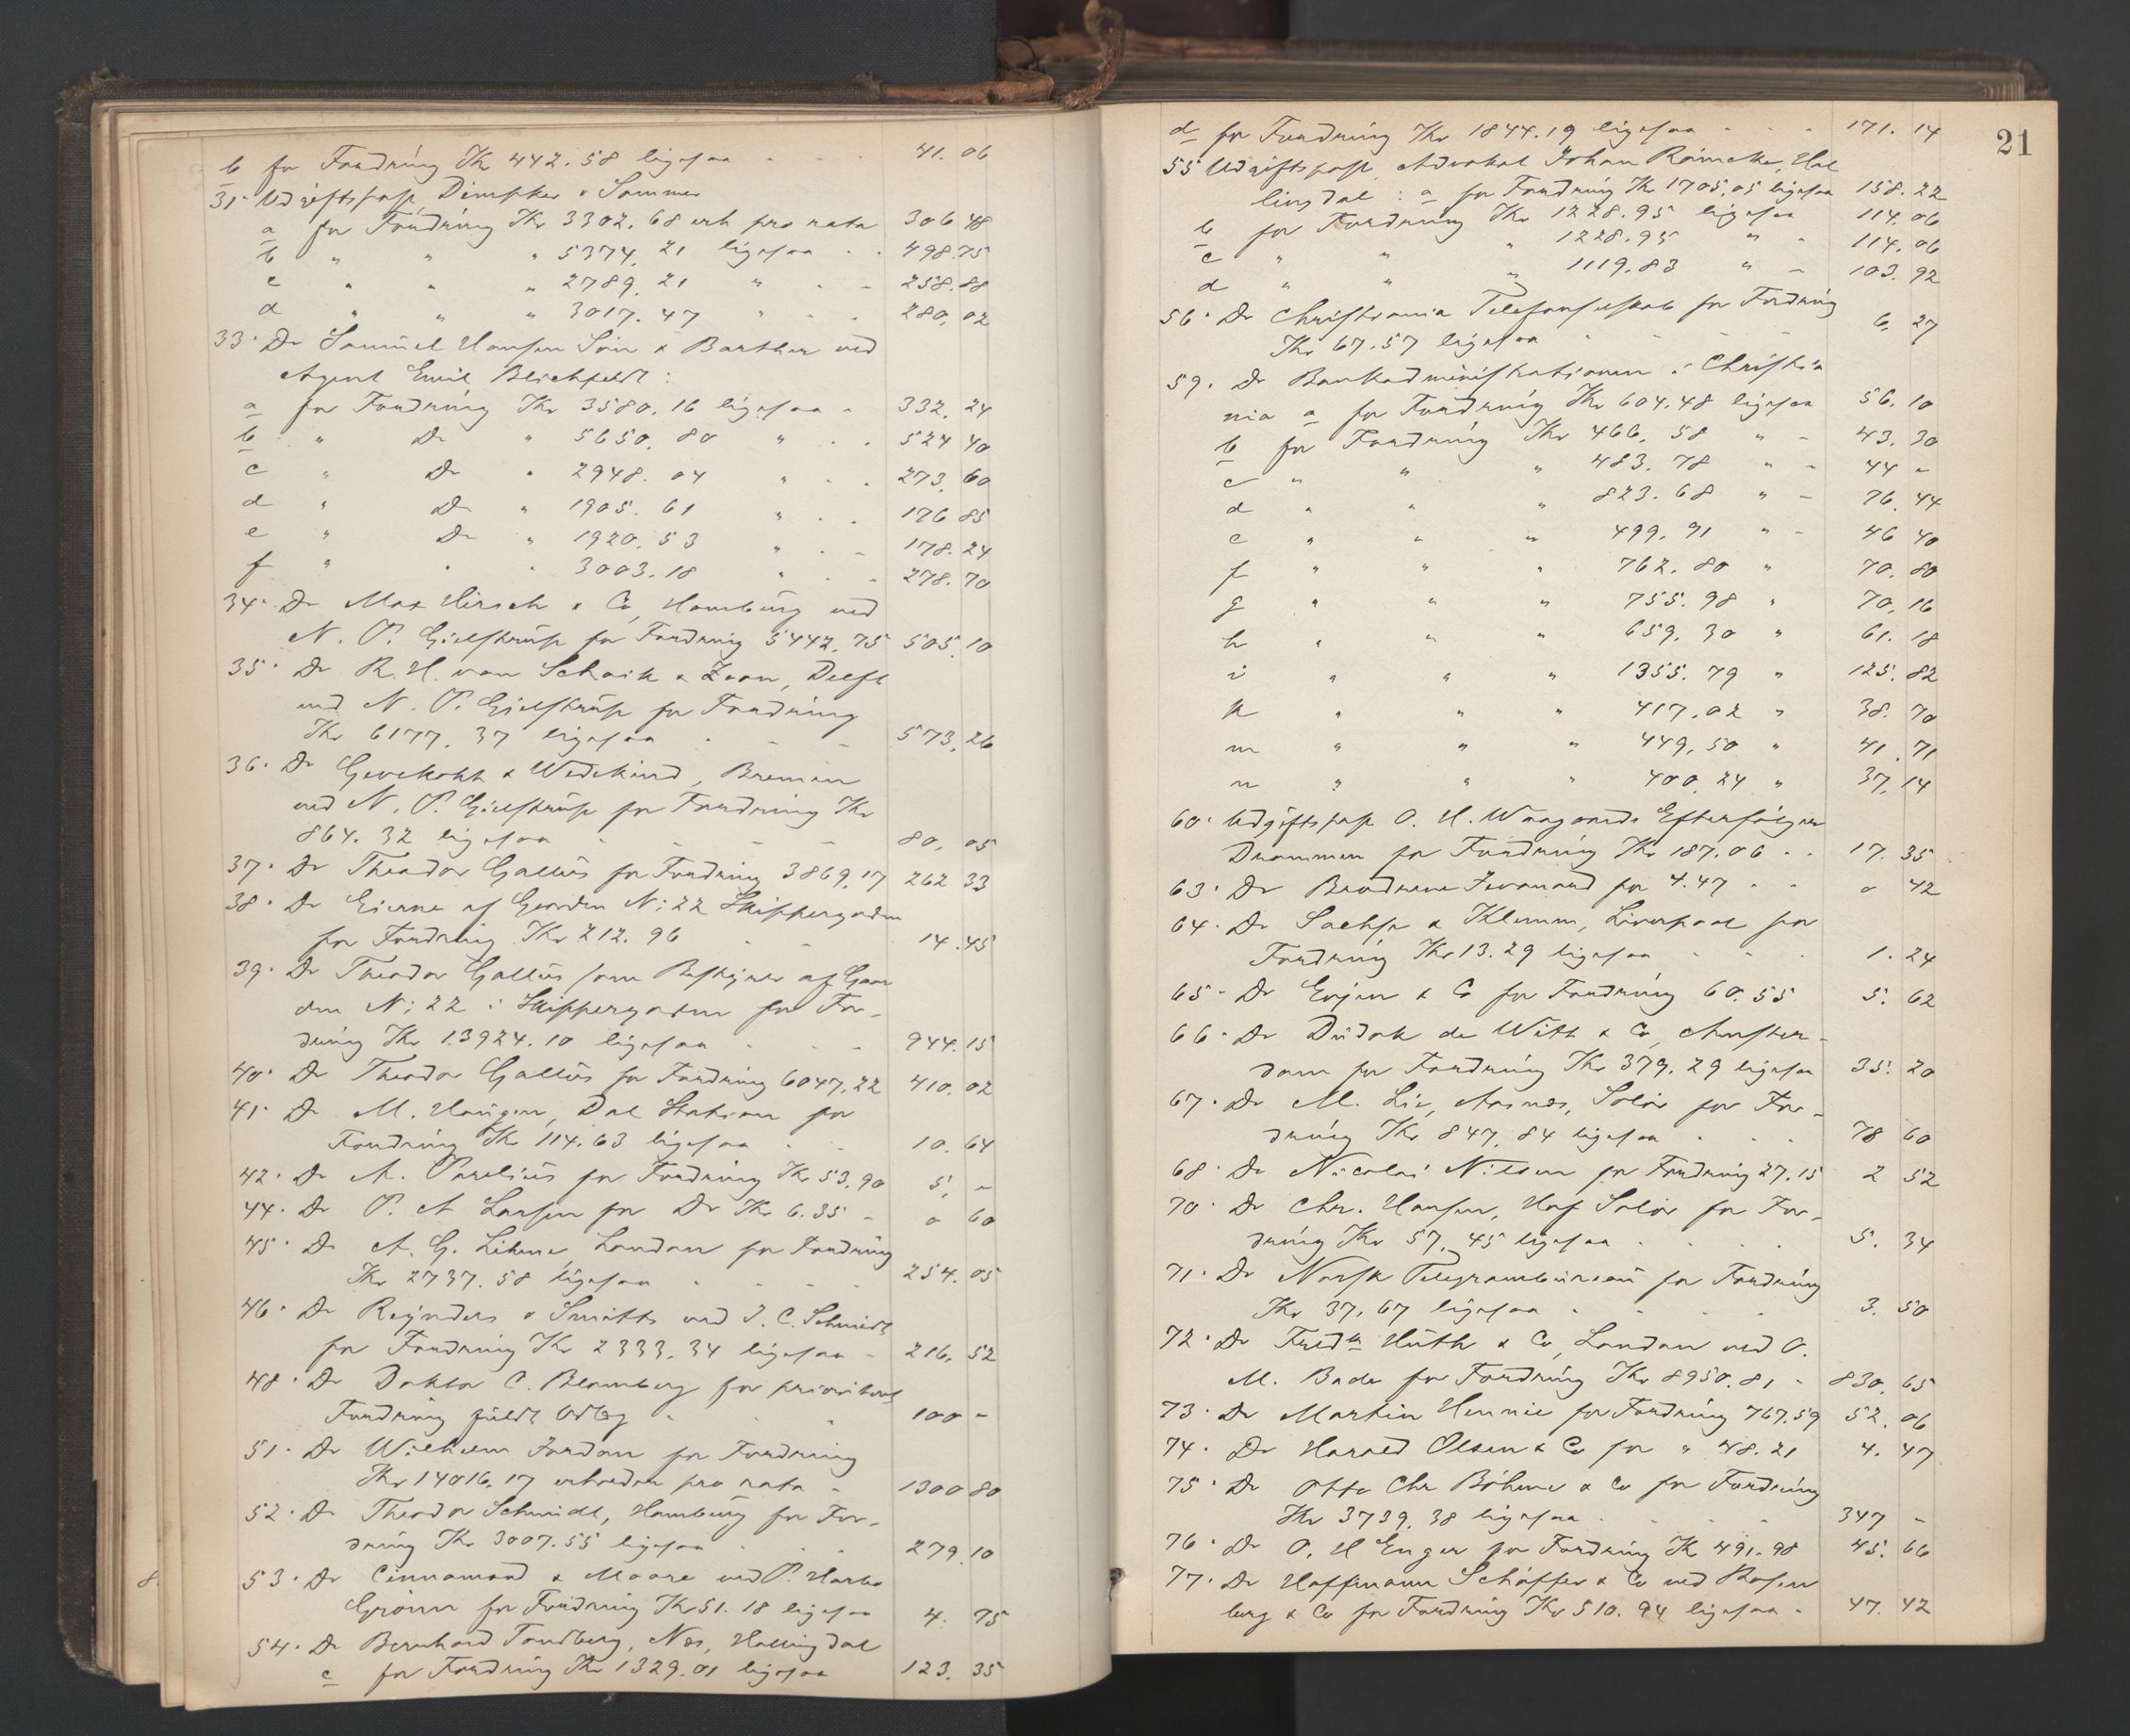 b for Fordring Kr 442.58 ligesaa - - - 41.06
31. Udgiftspost Dimpker & Sommer
a for Fordring Kr 3302.68 erh pro rata 306 48
b " " " 5374.21 ligesaa - - 498.75
c " " " 2789.21 " - - 258.88
d " " " 3017.47 " - - 280.02
33. Do Samuel Hansen Søn & Barther ved
Agent Emil Blichfeldt:
a for Fordring Kr 3580.16 ligesaa - 332.24
b " Do " 5650.80 " - - 524 40
c " Do " 2948.04 " - - 273.60
d " Do " 1905.61 " - - 176 85
e " Do " 1920.53 " - - 178.24
f " " " 3003.18 " - - 278.70
34. Do Max Hirsch & Co, Hamburg ved
N. P. Gielstrup for Fordring 5442.75 505.10
35. Do R. H. van Schaik & Zoon, Delft
ved N. P. Gielstrup for Fordring
Kr 6177.37 ligesaa - - - 573.26
36. Do Gevekoht & Wedekind, Bremen
ved N. P. Gielstrup for Fordring Kr
864.32 ligesaa - - - - 80.05
37. Do Theodor Gallus for Fordring 3869.17 262 33
38. Do Eierne af Gaarden N: 22 Skippergaden
for Fordring Kr 212.96 - - 14.45
39. Do Theodor Gallus som Bestyrer af Gaar
den N: 22 i Skippergaden for For-
dring Kr 13924.10 ligesaa - - - 944.15
40. Do Theodor Gallus for Fordring 6047.22 410.02
41. Do M. Haugen, Dal Station for
Fordring Kr 114.63 ligesaa - - 10.64
42. Do A. Parelius for Fordring Kr 53.90 5.-
44. Do P. A Larsen for Do Kr 6.35 - 0 60
45. Do A. G. London for Fordring
Kr 2737.58 ligesaa - - - - 254.05
46. Do Reynders & Smitts ved J. C. Schmidt
for Fordring Kr 2333.34 ligesaa - 216.52
48. Do Doktor C. Blomberg for prioriteret
Fordring fuldt Udlæg - - - 100 -
51. Do Wilhelm Jordan for Fordring
Kr 14016.17 erholder pro rata - 1300 80
52. Do Theodor Schmidt, Hamburg for For-
dring Kr 3007.55 ligesaa - - - 279.10
53. Do Cinnamond & Moore ved P. Harbo
Grønn for Fordring Kr 51.18 ligesaa 4.75
54. Do Bernhard Tandberg, Næs, Hallingdal
c for Fordring Kr 1329.01 ligesaa 123.35
21
d for Fordring Kr 1844.19 ligesaa - - - 171.14
55 Udgiftspost, Advokat Johan Reimcke, Hal
lingdal: a for Fordring Kr 1705.05 ligesaa 158.22
b for Fordring Kr 1228.95 ligesaa 114.06
c " " " 1228.95 " - 114.06
d " " " 1119.83 " - 103.92
56. Do Christiania Telefonselskab for Fordring
Kr 67.57 ligesaa - - - 6.27
59. Do Bankadministrationen i Christia
nia a for Fordring Kr 604.48 ligesaa 56.10
b for Fordring Kr 466.58 " - 43.30
c " " " 483.78 " - 44 -
d " " " 823.68 " - 76.44
e " " " 499.91 " - 46 40
f " " " 762.80 " 70.80
g " " " 755.98 " 70.16
h " " " 659.30 " 61.18
i " " " 1355.79 " 125.82
k " " " 417.02 " 38.70
m " " " 449.50 " 41.71
n " " " 400.24 " 37.14
60. Udgiftspost O. H. Waagaards Efterfølger
Drammen for Fordring Kr 187.06 - - 17.35
63. Do Brødrene for 4.47 - - 0 42
64. Do Sachse & Klemm, Liverpool for
Fordring Kr 13.29 ligesaa - - - 1.24
65. Do Evjen & Co for Fordring 60.55 5.62
66. Do Dudok de Witt & Co, Amster-
dam for Fordring Kr 379.29 ligesaa 35.20
67. Do M. Lie, Aasnæs, Solør for For-
dring Kr 847.84 ligesaa - - - 78 60
68. Do Nicolai Nilsen for Fordring 27.15 2 52
70. Do Chr. Hansen, Hof Solør for For-
dring Kr 57.45 ligesaa - - - - 5.34
71. Do Norsk Telegrambureau for Fordring
Kr 37.67 ligesaa - - - - 3.50
72. Do Fredk Huth & Co, London ved O.
M. Bade for Fordring Kr 8950.81 - 830.65
73. Do Martin Hennie for Fordring 767.59 52.06
74. Do Harald Olsen & Co for " 48.21 4.47
75. Do Otto Chr Böhme & Co for Fordring
Kr 3739.38 ligesaa - - - - 347 -
76. Do O. H Enger for Fordring Kr 491.98 45.66
77. Do Hoffmann Schäffer & Co ved Rosen
berg & Co for Fordring Kr 510.94 ligesaa - 47.42
8.